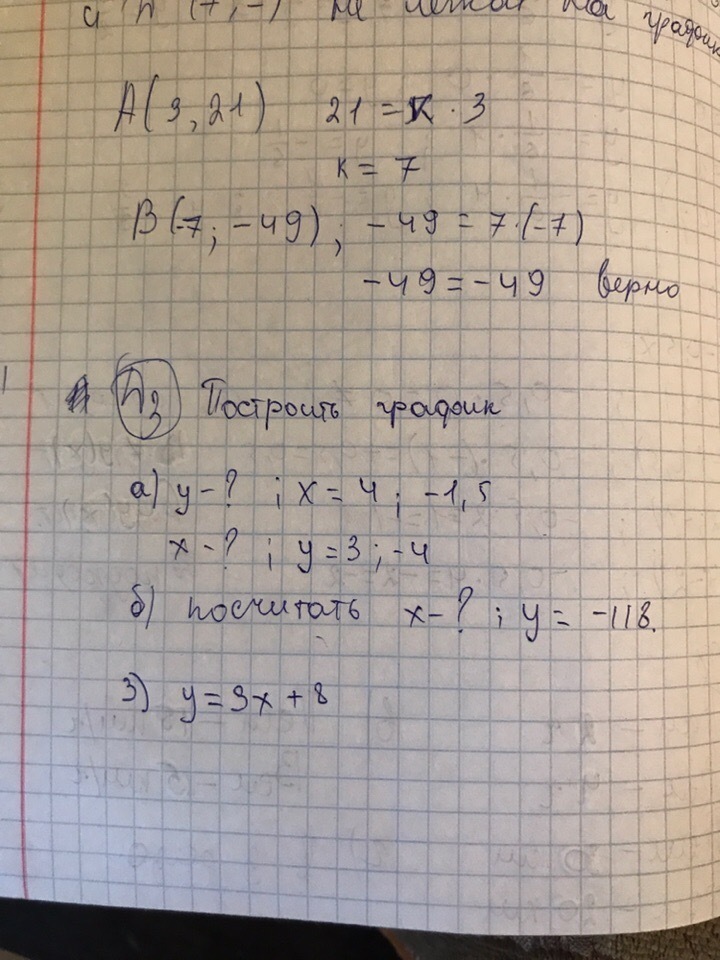 не лежат на график
A(3, 21) 21 = K · 3
K = 7
B(-7; -49); -49 = 7·(-7)
-49 = -49 верно
Построить график
а) y - ? ; x = 4; -1,5
x - ? ; y = 3; -4
б) посчитать x - ? ; y = -118.
3) y = 3x + 8